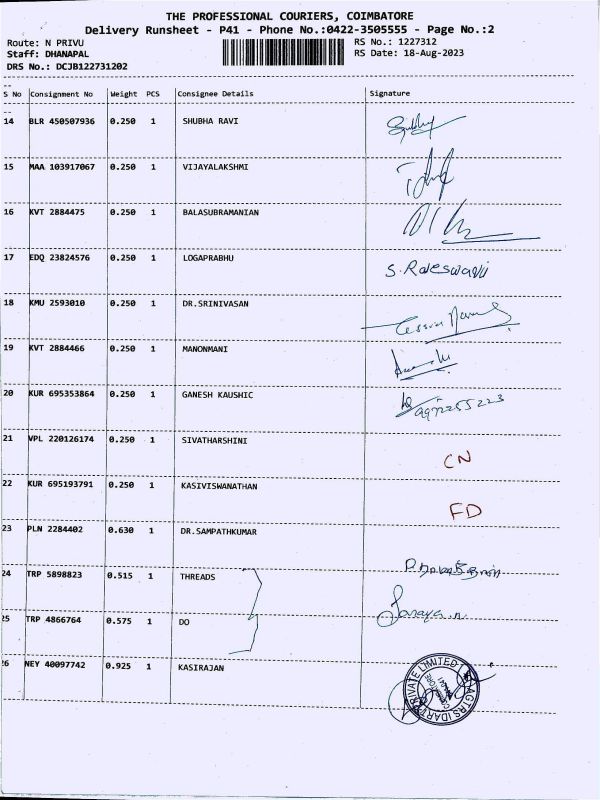 THE PROFESSIONAL COURIERS, COIMBATORE
Delivery Runsheet - P41 - Phone No.:0422-3505555 - Page No.:2
Route: N PRIVU RS No.: 1227312
Staff: DHANAPAL RS Date: 18-Aug-2023
DRS No.: DCJB122731202
S No Consignment No Weight PCS Consignee Details Signature
14 BLR 450507936 0.250 1 SHUBHA RAVI
15 MAA 103917067 0.250 1 VIJAYALAKSHMI
16 KVT 2884475 0.250 1 BALASUBRAMANIAN
17 EDQ 23824576 0.250 1 LOGAPRABHU
18 KMU 2593010 0.250 1 DR.SRINIVASAN
19 KVT 2884466 0.250 1 MANONMANI
20 KUR 695353864 0.250 1 GANESH KAUSHIC
21 VPL 220126174 0.250 1 SIVATHARSHINI CN
22 KUR 695193791 0.250 1 KASIVISWANATHAN FD
23 PLN 2284402 0.630 1 DR.SAMPATHKUMAR
24 TRP 5898823 0.515 1 THREADS
25 TRP 4866764 0.575 1 DO
26 NEY 40097742 0.925 1 KASIRAJAN
PRIVATE LIMITED